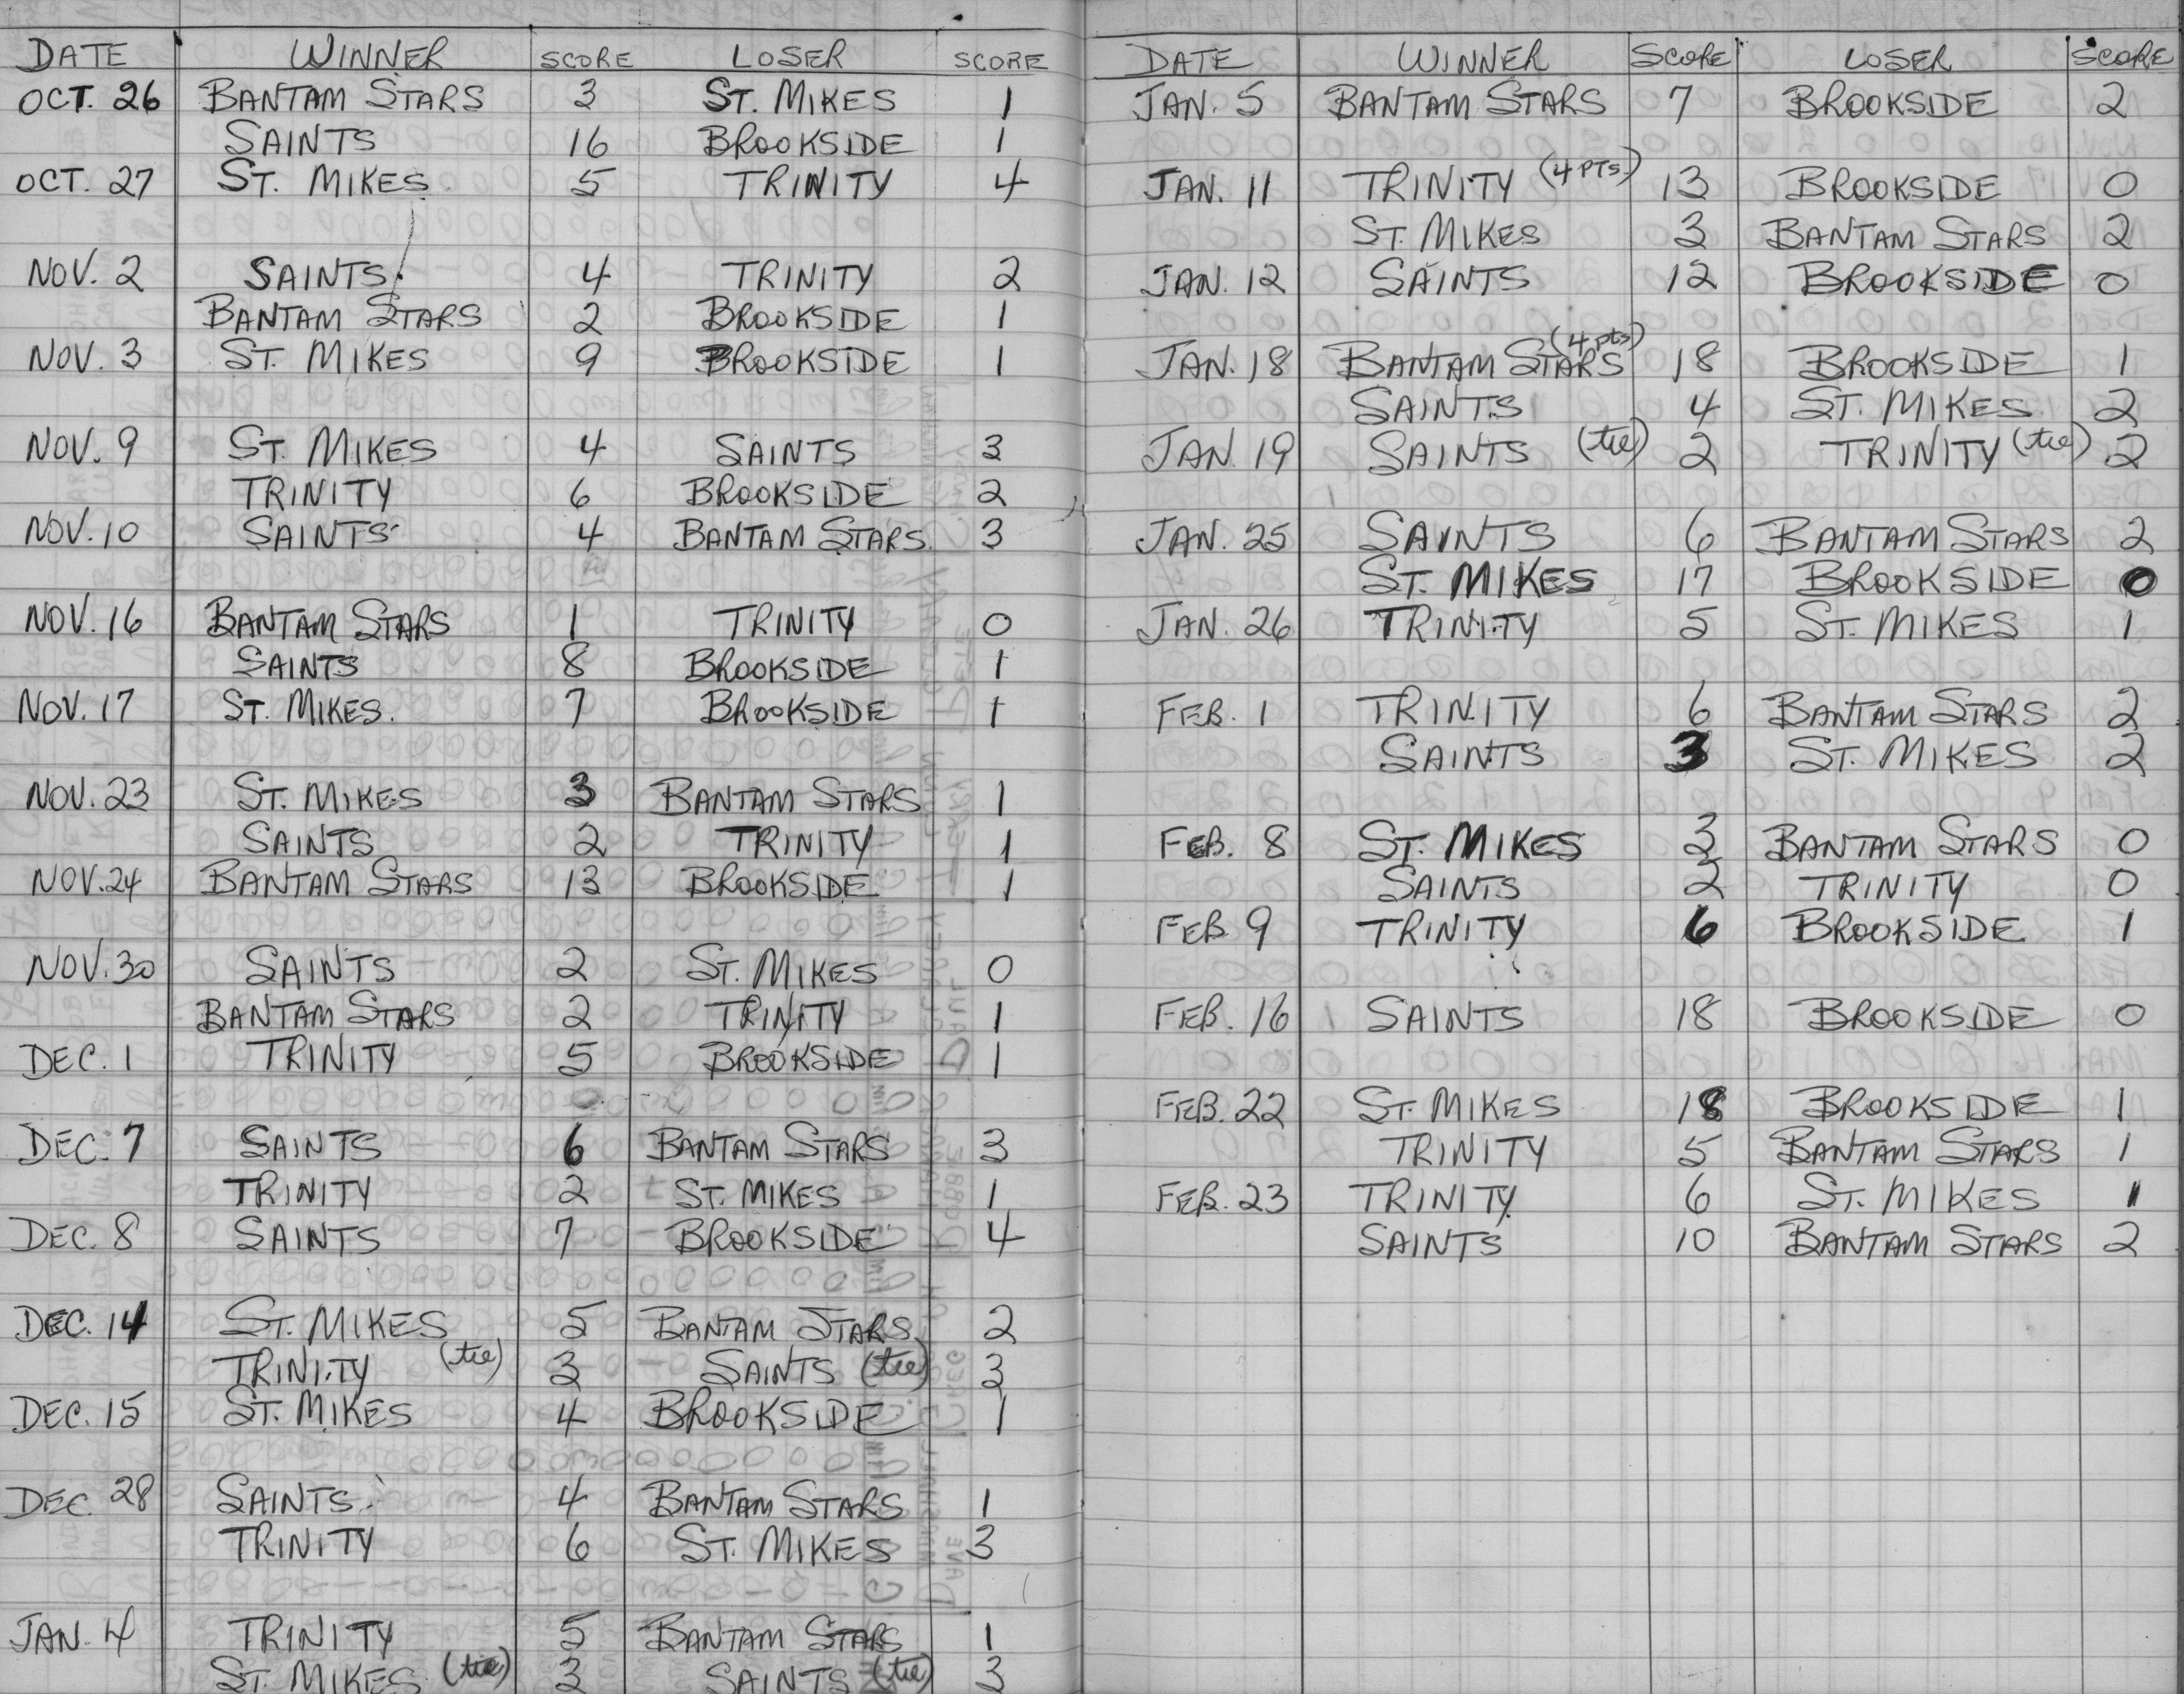 DATE WINNER SCORE LOSER SCORE
OCT. 26 BANTAM STARS 3 ST. MIKES 1
SAINTS 16 BROOKSIDE 1
OCT. 27 ST. MIKES 5 TRINITY 4
NOV. 2 SAINTS 4 TRINITY 2
BANTAM STARS 2 BROOKSIDE 1
NOV. 3 ST. MIKES 9 BROOKSIDE 1
NOV. 9 ST. MIKES 4 SAINTS 3
TRINITY 6 BROOKSIDE 2
NOV. 10 SAINTS 4 BANTAM STARS 3
NOV. 16 BANTAM STARS 1 TRINITY 0
SAINTS 8 BROOKSIDE 1
NOV. 17 ST. MIKES 7 BROOKSIDE 1
NOV. 23 ST. MIKES 3 BANTAM STARS 1
SAINTS 2 TRINITY 1
NOV. 24 BANTAM STARS 13 BROOKSIDE 1
NOV. 30 SAINTS 2 ST. MIKES 0
BANTAM STARS 2 TRINITY 1
DEC. 1 TRINITY 5 BROOKSIDE 1
DEC. 7 SAINTS 6 BANTAM STARS 3
TRINITY 2 ST. MIKES 1
DEC. 8 SAINTS 7 BROOKSIDE 4
DEC. 14 ST. MIKES 5 BANTAM STARS 2
TRINITY (tie) 3 SAINTS (tie) 3
DEC. 15 ST. MIKES 4 BROOKSIDE 1
DEC. 28 SAINTS 4 BANTAM STARS 1
TRINITY 6 ST. MIKES 3
JAN. 4 TRINITY 5 BANTAM STARS 1
ST. MIKES (tie) 3 SAINTS (tie) 3
DATE WINNER SCORE LOSER SCORE
JAN. 5 BANTAM STARS 7 BROOKSIDE 2
JAN. 11 TRINITY (4 PTS.) 13 BROOKSIDE 0
ST. MIKES 3 BANTAM STARS 2
JAN. 12 SAINTS 12 BROOKSIDE 0
JAN. 18 BANTAM STARS (4 pts) 18 BROOKSIDE 1
SAINTS 4 ST. MIKES 2
JAN. 19 SAINTS (tie) 2 TRINITY (tie) 2
JAN. 25 SAINTS 6 BANTAM STARS 2
ST. MIKES 17 BROOKSIDE 0
JAN. 26 TRINITY 5 ST. MIKES 1
FEB. 1 TRINITY 6 BANTAM STARS 2
SAINTS 3 ST. MIKES 2
FEB. 8 ST. MIKES 3 BANTAM STARS 0
SAINTS 2 TRINITY 0
FEB. 9 TRINITY 6 BROOKSIDE 1
FEB. 16 SAINTS 18 BROOKSIDE 0
FEB. 22 ST. MIKES 18 BROOKSIDE 1
TRINITY 5 BANTAM STARS 1
FEB. 23 TRINITY 6 ST. MIKES 1
SAINTS 10 BANTAM STARS 2